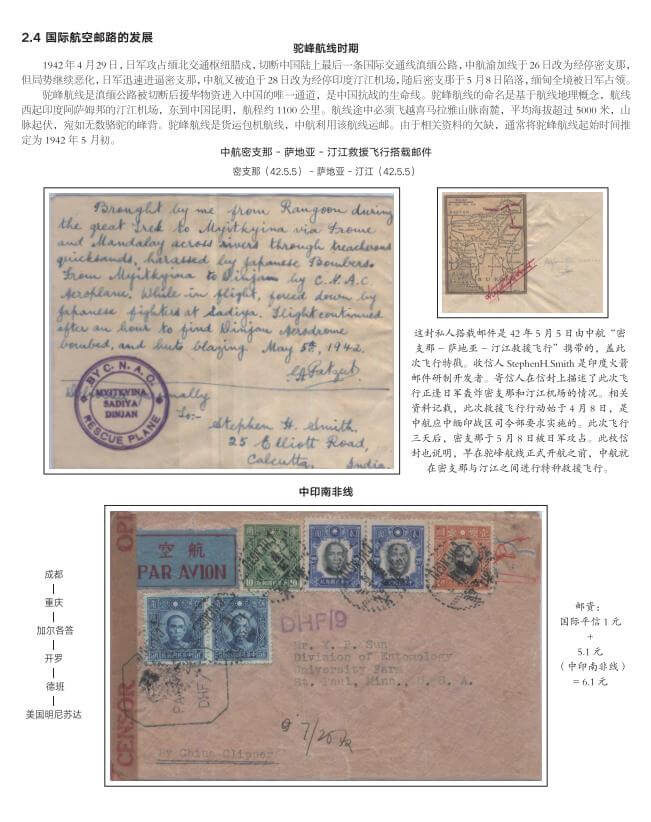 2.4 国际航空邮路的发展
驼峰航线时期
1942年4月29日，日军攻占缅北交通枢纽腊戍，切断中国陆上最后一条国际交通线滇缅公路，中航渝加线于26日改为经停密支那，
但局势继续恶化，日军迅速进逼密支那，中航又被迫于28日改为经停印度汀江机场，随后密支那于5月8日陷落，缅甸全境被日军占领。
驼峰航线是滇缅公路被切断后援华物资进入中国的唯一通道，是中国抗战的生命线。驼峰航线的命名是基于航线地理概念，航线
西起印度阿萨姆邦的汀江机场，东到中国昆明，航程约1100公里。航线途中必须飞越喜马拉雅山脉南麓，平均海拔超过5000米，山
脉起伏，宛如无数骆驼的峰背。驼峰航线是货运包机航线，中航利用该航线运邮。由于相关资料的欠缺，通常将驼峰航线起始时间推
定为1942年5月初。
中航密支那–萨地亚–汀江救援飞行搭载邮件
密支那（42.5.5）–萨地亚–汀江（42.5.5）
Brought by me from Rangoon during
the great trek to Myitkyina via Prome
and Mandalay across rivers through treacherous
quicksands, harassed by Japanese Bombers.
From Myitkyina to Dinjan by C.N.A.C
Aeroplane. While in flight, forced down by
Japanese fighters at Sadiya. Flight continued
after an hour to find Dinjan Aerodrome
bombed, and huts blazing. May 5th, 1942.
BY C.N.A.C.
MYITKYINA
SADIYA
DINJAN
RESCUE PLANE
To:-
Stephen H. Smith.
25 Elliott Road,
Calcutta. India.
这封私人搭载邮件是42年5月5日由中航“密
支那–萨地亚–汀江救援飞行”携带的，盖此
次飞行特戳。收信人StephenH.Smith是印度火箭
邮件研制开发者。寄信人在信封上描述了此次飞
行正逢日军轰炸密支那和汀江机场的情况。相关
资料记载，此次救援飞行行动始于4月8日，是
中航应中缅印战区司令部要求实施的。此次飞行
三天后，密支那于5月8日被日军攻占。此枚信
封也说明，早在驼峰航线正式开航之前，中航就
在密支那与汀江之间进行特种救援飞行。
中印南非线
成都
重庆
加尔各答
开罗
德班
美国明尼苏达
OP
空航
PAR AVION
DHF/9
Mr. Y. P. Sun
Division of Entomology
University Farm
St. Paul, Minn., U. S. A.
PAS
DHF
CENSOR
By China Clipper
邮资：
国际平信1元
+
5.1元
（中印南非线）
＝6.1元